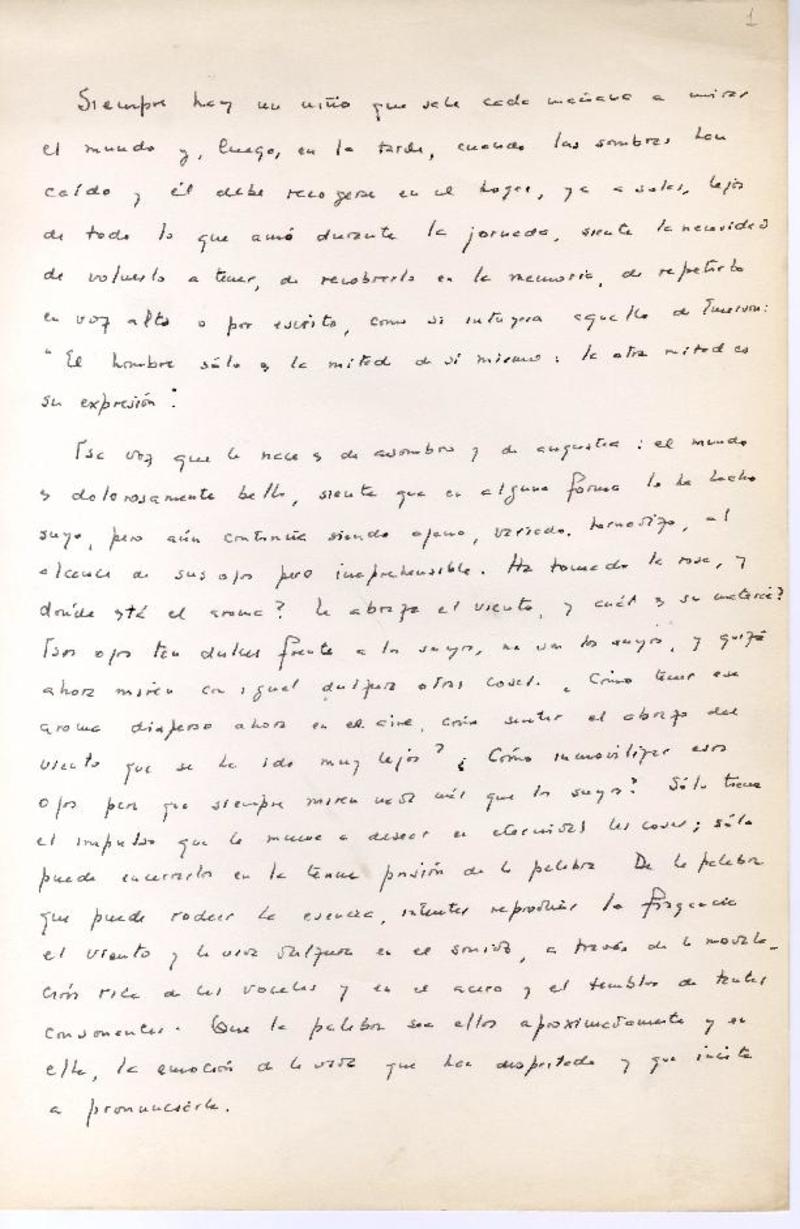 1
Siempre hay un niño que sale cada mañana a mirar
el mundo y, luego, en la tarde, cuando las sombras han
caído y él debe recogerse en el hogar, ya a solas, lejos
de todo lo que amó durante la jornada, siente la necesidad
de volverlo a tener, de recobrarlo en la memoria, de repetirlo
en voz alta o por escrito, como si intuyera aquello de Emerson:
"El hombre sólo es la mitad de si mismo: la otra mitad es
su expresión".
Esa voz que le nace es de asombro y de angustia: el mundo
es dolorosamente bello, siente que en alguna forma lo ha hecho
suyo, pero aún continúa siendo ajeno, variado, tornadizo, al
alcance de sus ojos pero inaprehensible. Ha tomado la rosa, y
dónde está el aroma? Le abraza el viento, y cuál es su materia?
Esos ojos tan dulces frente a los suyos, no son los suyos, y quizá
ahora miren con igual dulzura otras cosas. ¿Cómo tener ese
aroma disperso ahora en el aire, cómo sentir el abrazo del
viento que se ha ido muy lejos? ¿Cómo inmovilizar esos
ojos para que siempre miren nada más que los suyos? Sólo tiene
el impulso que le mueve a desear en eternidad las cosas; sólo
puede encerrarlos en la tenue prisión de la palabra. De la palabra
que puede rodear la esencia, intentar reproducir la fragancia
el viento y la viva dulzura en el sonido, a través de la modula-
ción rica de las vocales y en el acero y el temblor de tantas
consonantes. Que la palabra sea ellos aproximadamente y en
ella, la emoción de la vida que han despertado y que incita
a pronunciarla.